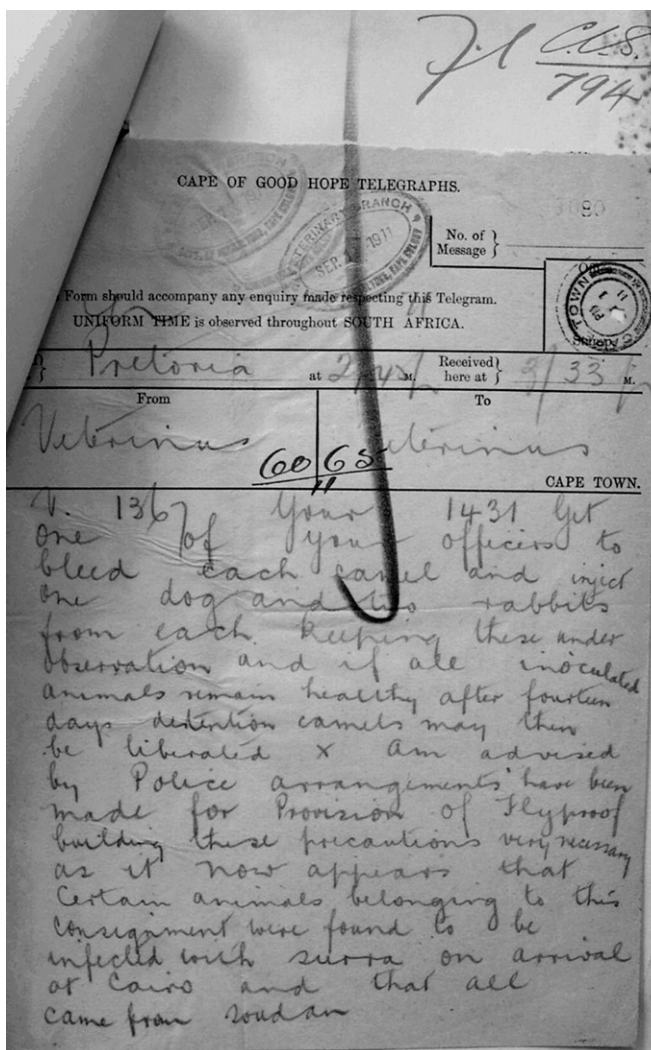 C.V.S.
794
CAPE OF GOOD HOPE TELEGRAPHS.
VETERINARY BRANCH
SEP. 1911
No. of Message
Form should accompany any enquiry made respecting this Telegram.
UNIFORM TIME is observed throughout SOUTH AFRICA.
Pretoria at M. Received here at 3/33 p M.
From To
Veterinus Veterinus
60 65
CAPE TOWN.
V. 1367 Your 1431 Get
one of your officers to
bleed each camel and inject
one dog and two rabbits
from each keeping these under
observation and if all inoculated
animals remain healthy after fourteen
days detention camels may then
be liberated x Am advised
by Police arrangements have been
made for Provision of Flyproof
building these precautions very necessary
as it now appears that
Certain animals belonging to this
Consignment were found to be
infected with surra on arrival
at Cairo and that all
came from Soudan